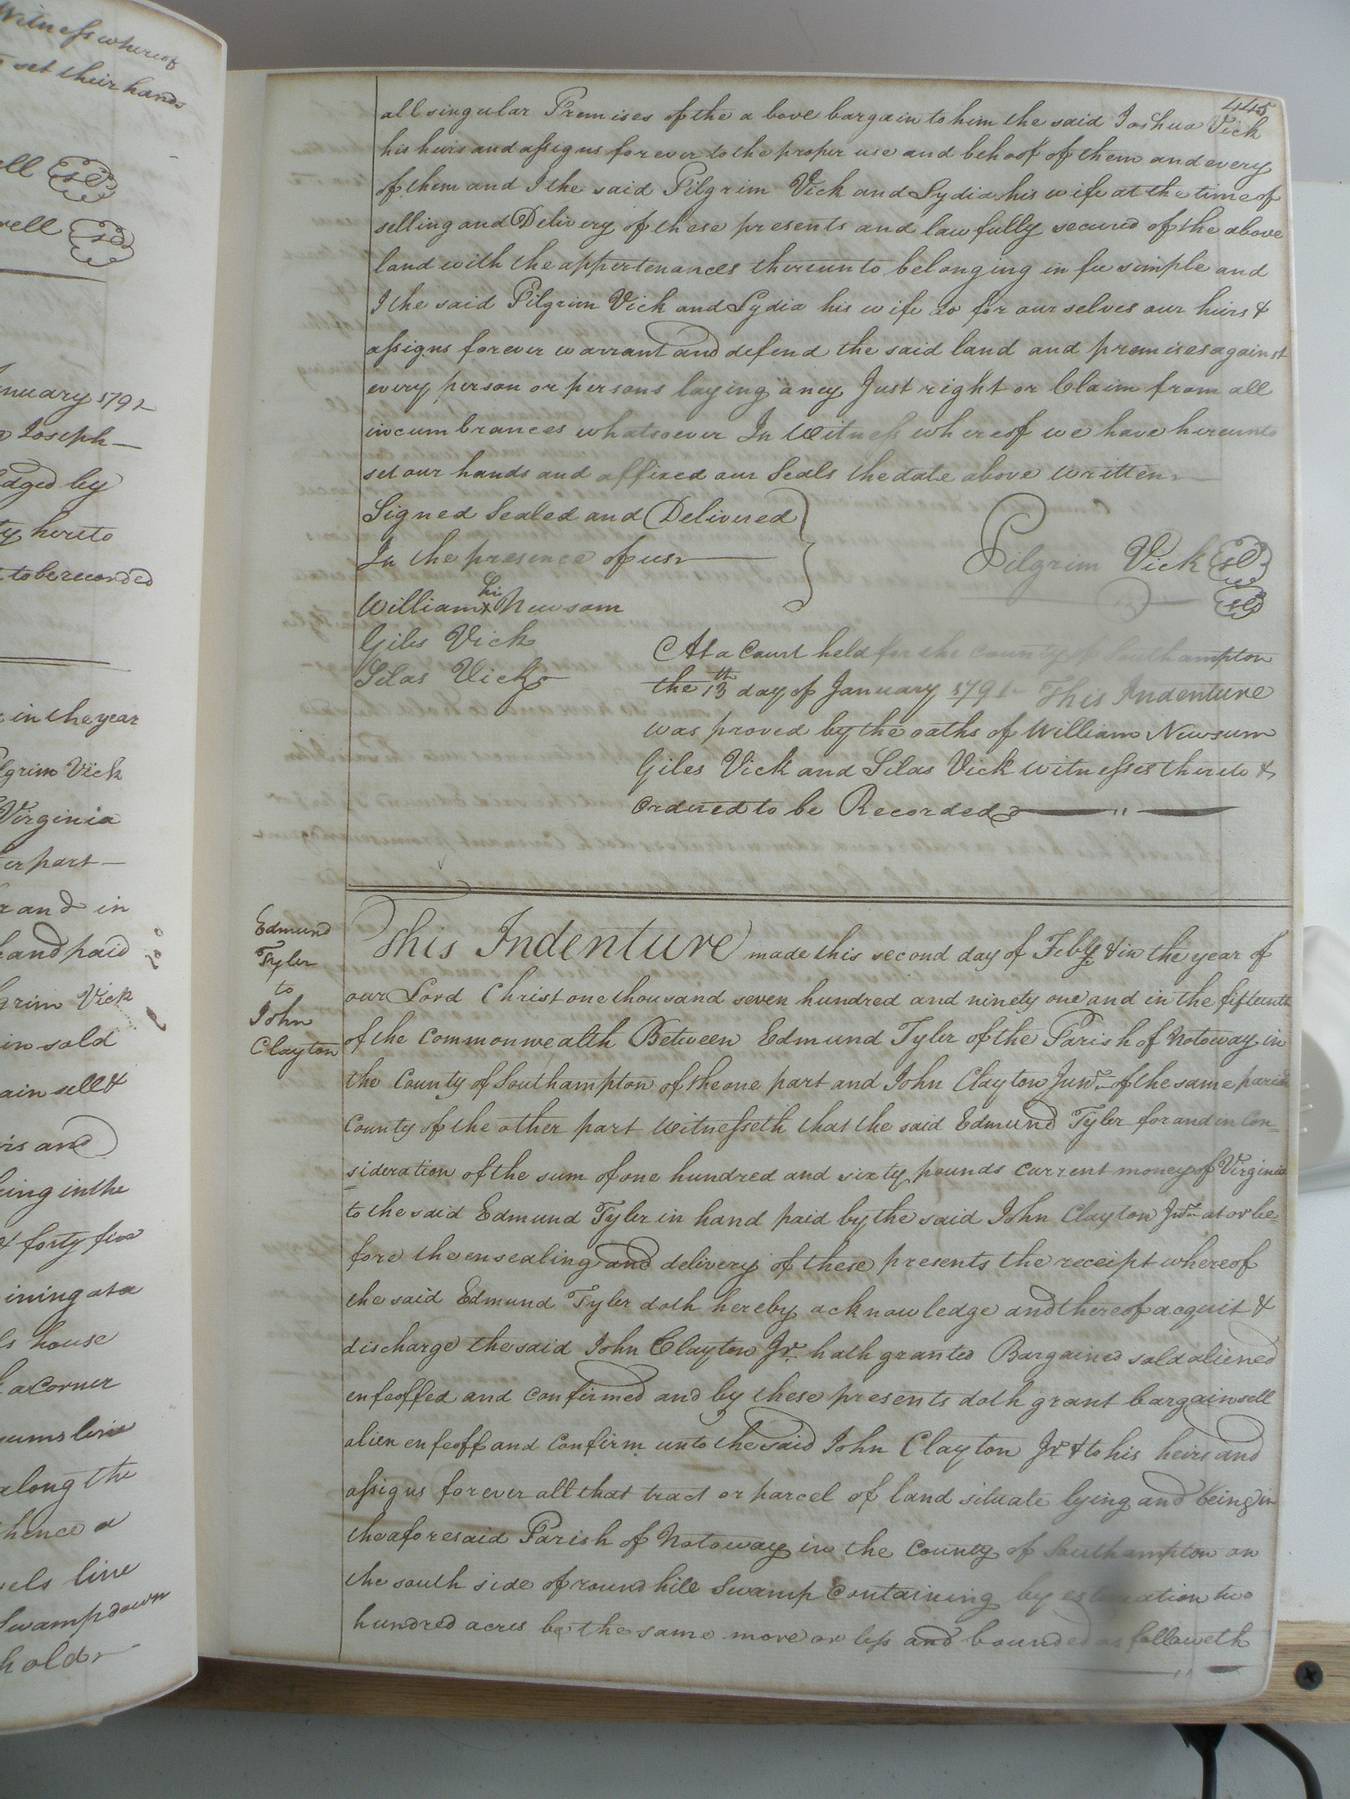 Witness whereof
set their hands
ell
well
January 1791
Joseph
edged by
ty hereto
to be recorded
in the year
lgrim Vick
Virginia
er part
and in
hand paid
grim Vick
in sold
ain sell &
irs and
eing in the
& forty five
ining at a
ls house
a Corner
sums line
along the
thence a
els line
Swamp down
hold
445
all singular Premises of the a bove bargain to him the said Joshua Vick
his heirs and assigns forever to the proper use and behoof of them and every
of them and I the said Pilgrim Vick and Lydia his wife at the time of
selling and Delivery of these presents and lawfully secured of the above
land with the appertenances thereunto belonging in fee simple and
I the said Pilgrim Vick and Lydia his wife do for our selves our heirs &
assigns forever warrant and defend the said land and premises against
every person or persons laying aney Just right or Claim from all
incumbrances whatsoever In Witness whereof we have hereunto
set our hands and affixed our Seals the date above written
Signed Sealed and Delivered
In the presence of us
Pilgrim Vick
William his x Newsom
Giles Vick
Silas Vick
At a Court held for the County of Southampton
the 13th day of January 1791 This Indenture
was proved by the oaths of William Newsum
Giles Vick and Silas Vick witnesses thereto &
ordered to be Recorded
Edmund
Tyler
to
John
Clayton
This Indenture made this second day of Feby & in the year of
our Lord Christ one thousand seven hundred and ninety one and in the fifteenth
of the Commonwealth Between Edmund Tyler of the Parish of Notoway in
the County of Southampton of the one part and John Clayton Junr of the same parish
County of the other part Witnesseth that the said Edmund Tyler for and in Con=
sideration of the sum of one hundred and sixty pounds current money of Virginia
to the said Edmund Tyler in hand paid by the said John Clayton Junr at or be=
fore the ensealing and delivery of these presents the receipt whereof
the said Edmund Tyler doth hereby acknowledge and thereof acquit &
discharge the said John Clayton Jr. hath granted Bargained sold aliened
enfeoffed and Confirmed and by these presents doth grant bargain sell
alien enfeoff and Confirm unto the said John Clayton Jr. & to his heirs and
assigns forever all that tract or parcel of land situate lying and being in
the aforesaid Parish of Notoway in the County of Southampton on
the south side of round hill Swamp Containing by estimation two
hundred acres be the same more or less and bounded as followeth